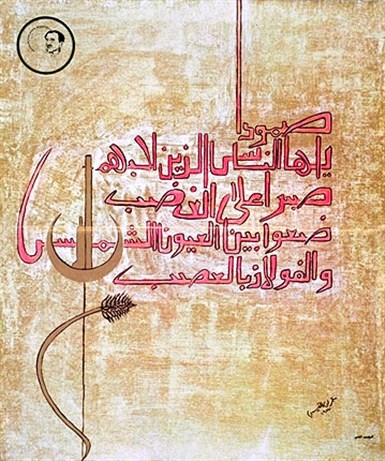 صمود
يايها الناس الذين احبهم
صبرا على الغضب
ضعوا بين العيون الشمس
والفولاذ بالعصب